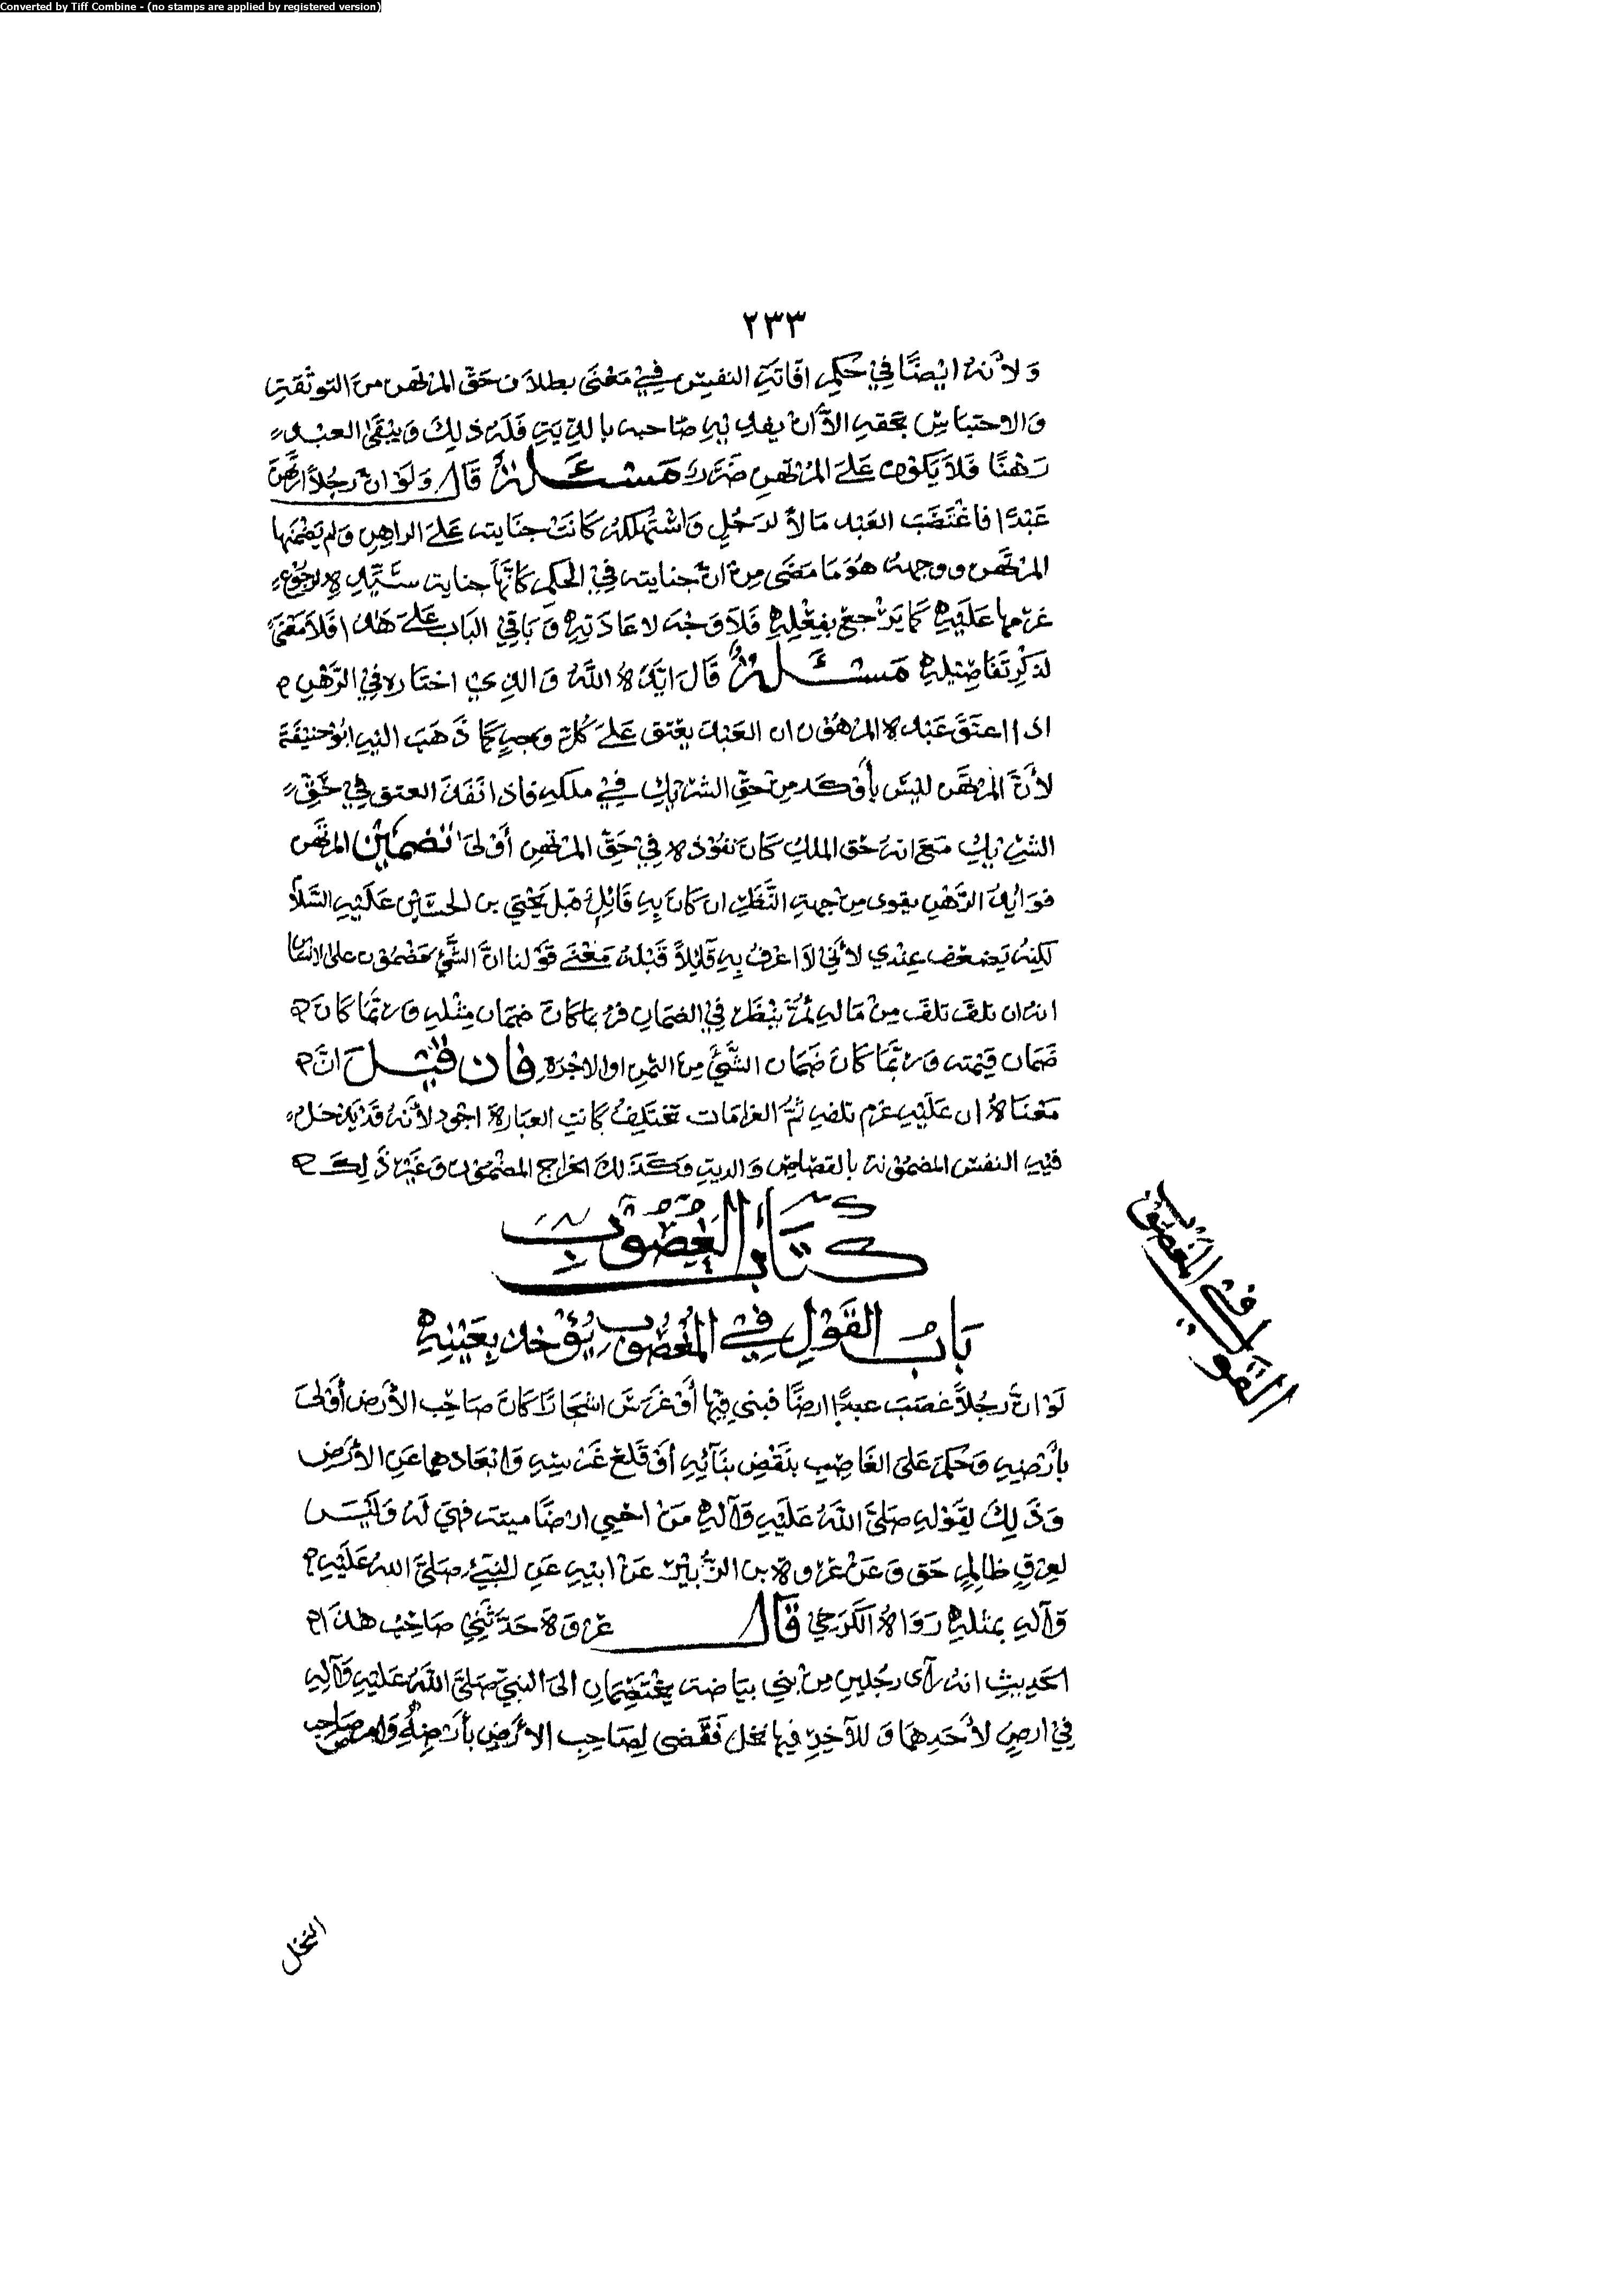 Converted by Tiff Combine - (no stamps are applied by registered version)
٢٣٣
وَلأنه ايْضًا فِي حُكمِ افَاتَةِ النفيسِ فِي مَعْنَى بطلاَن حَقّ المرْتَهن منَ التوثقة
وَالاحتبَاسِ بحَقهِ الاَّ انْ يفديَهِ صَاحبه بالدِّيَةِ فَلَهُ ذلِكَ وَيَبْقَى العبد
رَهْنًا فَلاَ يَكوْن عَلىَ المُرْتَهنِ ضَرَرَ مَسْئَلَةٌ قَالَ وَلَوْ انَّ رَجُلاً ارْتَهنَ
عَبْدًا فاغْتَصَبَ العَبْد مَالاً لرَجُلٍ وَاسْتهْلَكَهُ كَانَتْ جنَايته عَلىَ الراهِنِ وَلم يَضْمَنها
المرْتَهن ووجهه هُوَ مَا مَضَى مِنْ انَّ جنايته في الحكم كَانَّهَا جناية سَيِّدِهِ لِرجُوْعِ
غرْمها عَلَيْهِ كَمَا يَرْجعُ بفِعْلِهِ فَلاَ وَجْهَ لاعَادَتِهِ وَبَاقي البَاب عَلىَ هَذَا فَلاَ مَعْنَى
لذكْرِ تَفَاصِيْلِهِ مَسْئَلَةٌ قَالَ ايَّدَهُ اللَّهُ وَالذِي اختَارهُ فِي الرَّهْنِ
اذا اعتَقَ عَبْدهُ المرْهُوْن ان العَبْدَ يعْتق عَلىَ كُلِّ وَجهٍ كمَا ذَهَبَ اليهِ ابُوْ حَنيْفَةَ
لأَنَّ المرْتَهَن ليْسَ بأَوْكَد منْ حَقِّ الشرَيْكِ فِي ملكهِ فاذا نَفَذَ العتق فِي حَقِّ
الشرِيْكِ مَعَ انهُ حَق الملكِ كَانَ نفوْذهُ فِيْ حَقِّ المرْتهنِ أوْلىَ تضميْن المرتهن
فوَائِد الرَّهْنِ يقوى مِنْ جهةِ النَّظَرِ ان كَانَ بِهِ قَائِلٌ قبْلَ يَحْيَى بن الحسَيْنِ عَلَيْهِ السَّلاَم
لكِنهُ يَضعف عنْدي لأني لاَ اعْرفُ بِهِ قَائِلاً قَبْلَهُ مَعْنَى قَوْلنا انَّ الشَّيْ مَضْمُوْن على الانسَان
انهُ ان تلفَ تلفَ منْ مَالهِ ثُمَّ ينْظَر فِي الضمَانِ فرُبماكَانَ ضمَان مِثْلهِ وَرُبَّمَا كَانَ
ضَمَان قِيْمَته وَرُبَّمَا كَانَ ضَمَان الشَّيْ مِنَ الثمن اوالاجْرَةِ فان قيْلَ انَّ
مَعْنَاهُ ان عَلَيْهِ غرم تلفهِ ثُمَّ الغرامَات تختَلِفُ كانتِ العبَارة اجْود لأَنهُ قَدْ يَدْخل
فيْهِ النفس المضمُوْنة بالقصَاصِ وَالدية وَكَذَلكَ الخراج المضْمُوْن وَغَيْرُ ذَلِكَ
كتَابُ الغُصُوْب
بَابُ القَوْلِ فِي المَغْصُوْب يُؤخذ بِعَيْنِهِ
القَوْل في المَغْصُوْب
لَوْ انَّ رَجُلاً غصَبَ عبدًا ارضًا فبنى فِيْهَا أوْ غَرَسَ اشجَارًا كَانَ صَاحِب الأَرْض أَوْلىَ
بأرْضِهِ وَحُكمَ عَلىَ الغَاصِب بنَقْضِ بنَآئِهِ أوْ قَلعِ غَرْسِهِ وَابْعَادهما عَنِ الأَرْضِ
وَذَلِكَ لِقَوْلهِ صَلَّى اللَّهُ عَلَيْهِ وَآلهِ مَنْ احْيى ارْضًا ميتة فهيَ لَهُ وَلَيْسَ
لعِرْقٍ ظالمٍ حَق وَعَنْ عرْوة بن الزُّبيْر عَنْ ابيْهِ عَنِ النبيّ صَلىَّ اللهُ عَلَيْهِ
وَآلهِ بمثلهِ رَوَاهُ الكَرَخِي قَالَ عرْوَة حَدَّثَنِيْ صَاحِبُ هَذَا
الحَدِيثِ انهُ رَآى رجُلينِ مِنْ بني بيَاضة يَخْتَصِمَانِ الىَ النبيّ صَلَّى اللَّهُ عَليْهِ وَآلِهِ
فِيْ ارضٍ لأَحَدِهمَا وَللآخرِ فيْهَا نخل فَقضى لِصَاحِبِ الأرْضِ بأرْضِهِ وَامر صَاحِب
النخل